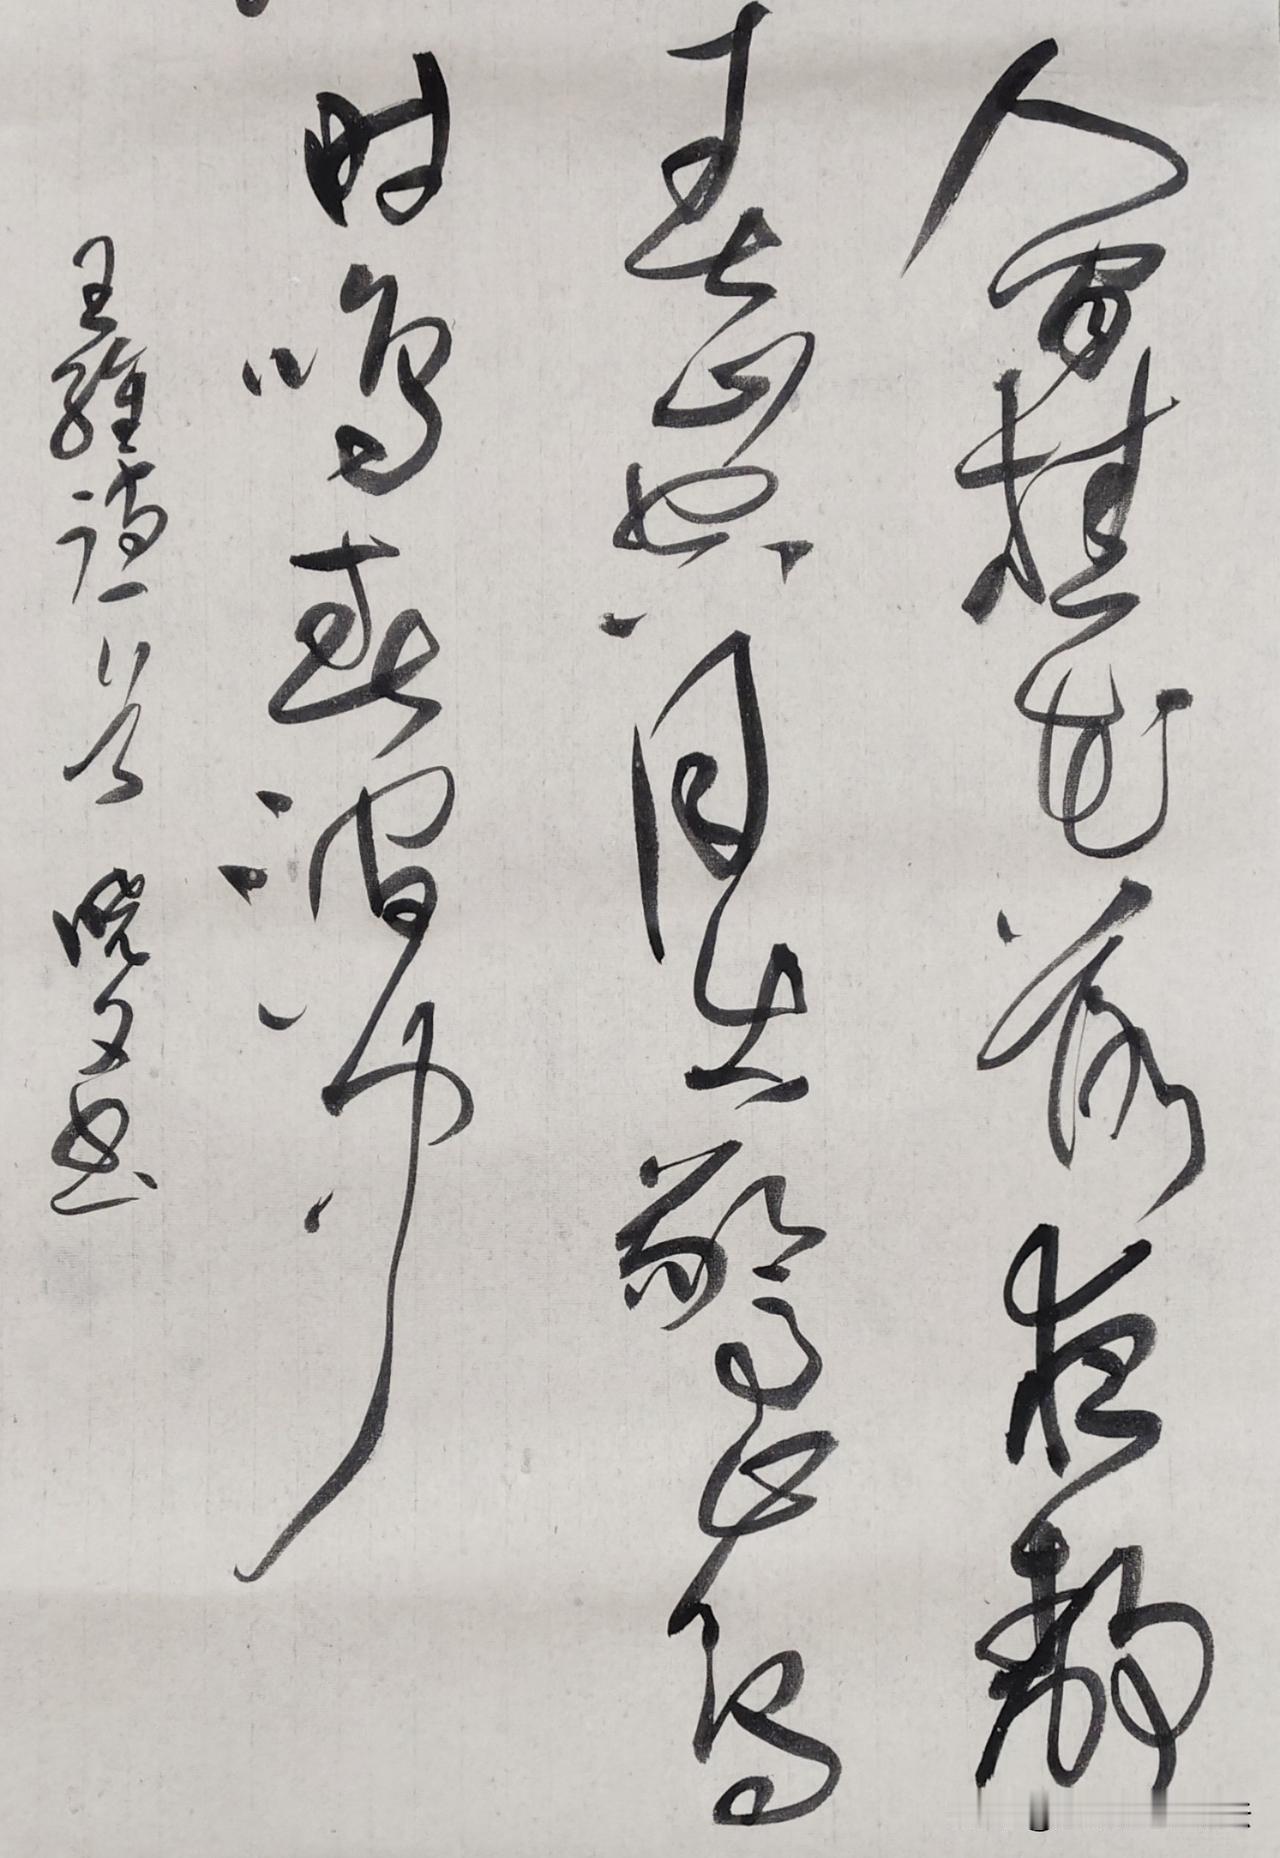 人闲桂花落夜静
春山空月出惊山鸟
时鸣春涧中
王维诗一首 晓文书